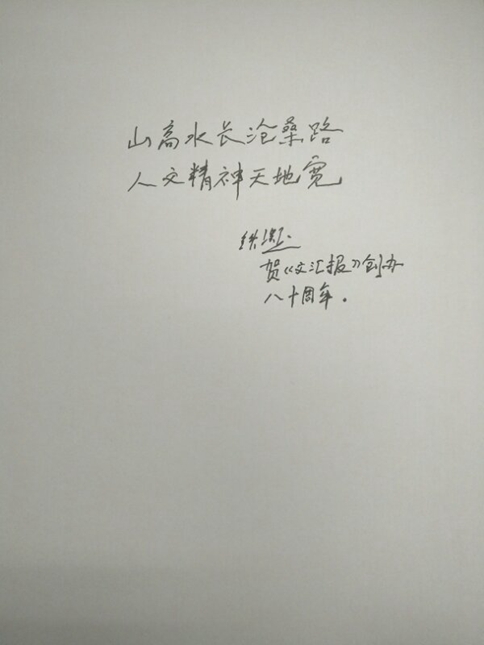 山高水长沧桑路
人文精神天地宽
贺《文汇报》创办
八十周年.